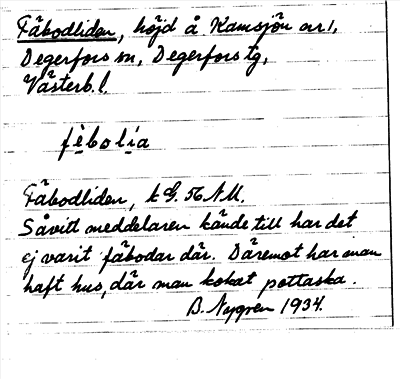 Fäbodliden, höjd å Kamsjön or 1,
Degerfors sn, Degerfors tg,
Västerb. l.
fèbolia
Fäbodliden, k G. 56 NM.
Såvitt meddelaren kände till har det
ej varit fäbodar där. Däremot har man
haft hus, där man kokat pottaska.
B. Nygren 1934.